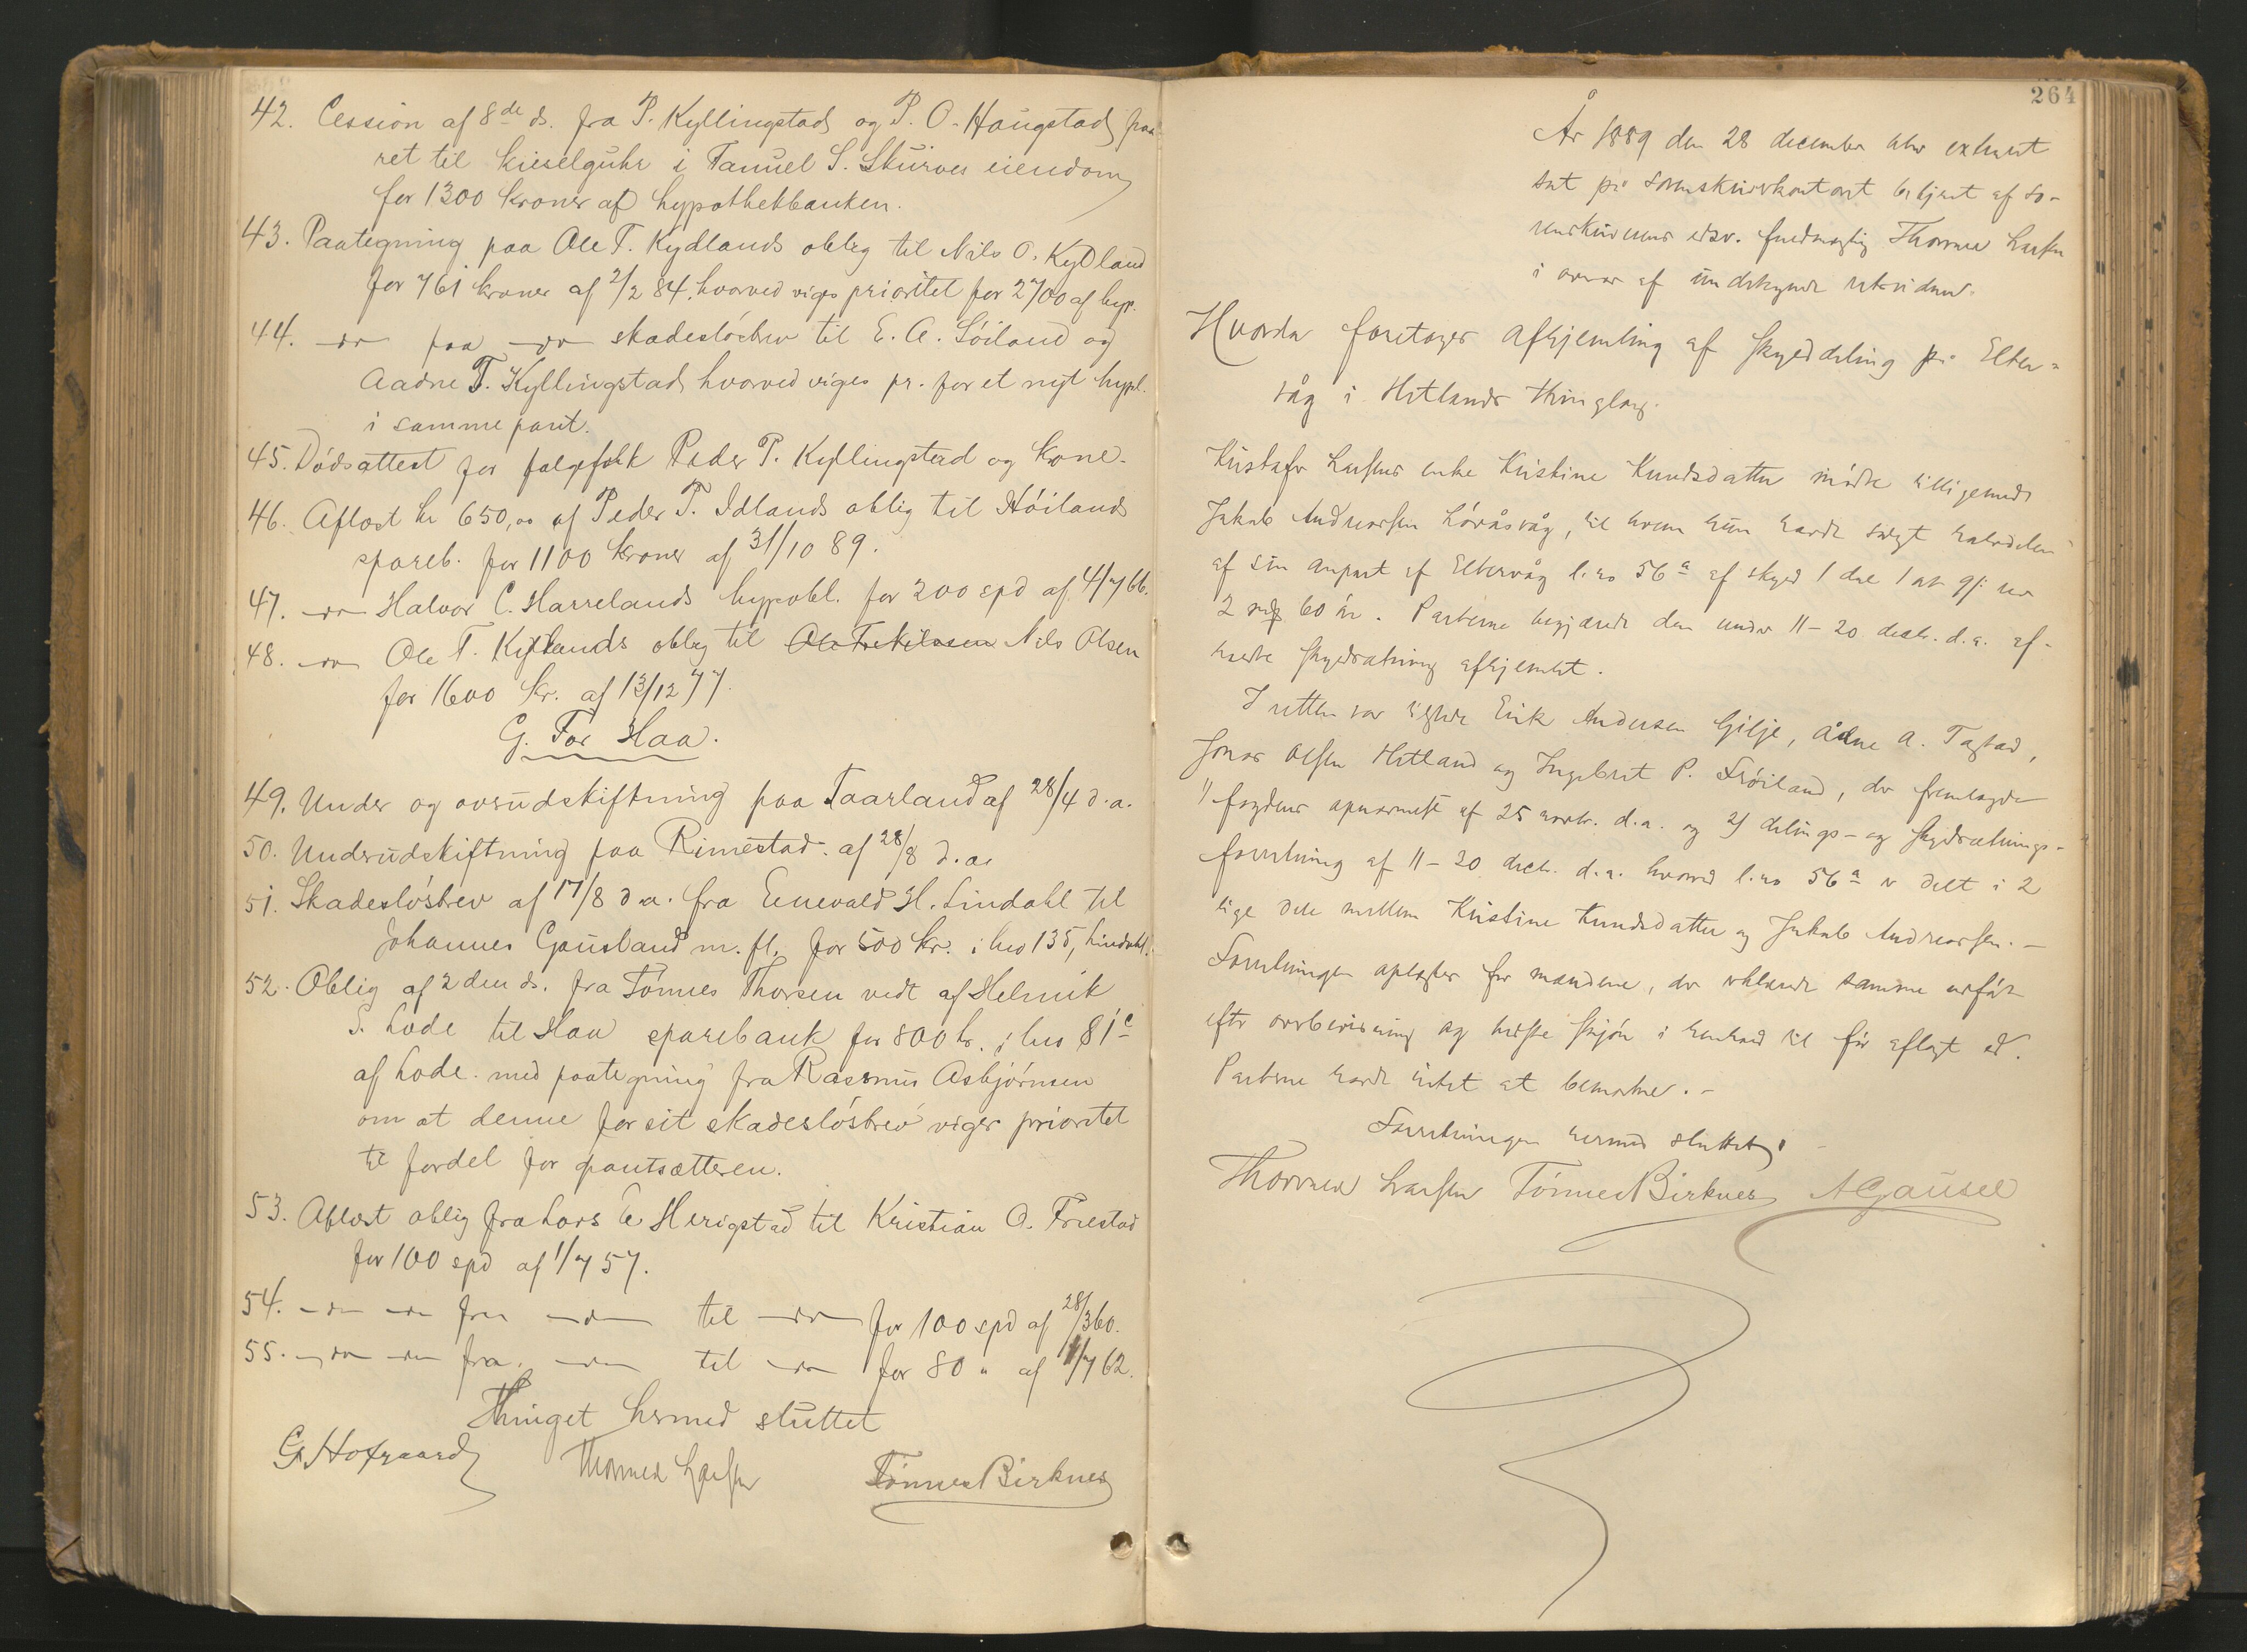 42. Cession af 8de ds. fra P. Kyllingstad og P. O. Haugstad paa
ret til kieselguhr i Tanuel S. Skurves eiendom
for 1300 kroner af hypothekbanken.
43. Paategning paa Ole T. Kydlands oblig til Nils O. Kydland
for 761 kroner af 2/2 84, hvorved viges prioritet for 2700 af hyp.
44. -do- paa -do- skadesløsbrev til E. A. Søiland og
Aadne T. Kyllingstad, hvorved viges pr. for et nyt hypl.
i samme pant.
45. Dødsattest for følgefolk Peder P. Kyllingstad og kone.
46. Aflæst kr 650,00 af Peder T. Idlands oblig til Høilands
spareb. for 1100 kroner af 31/10 89.
47. -do- Halvor C. Harrelands hypobl. for 200 spd af 4/7 66.
48. -do- Ole T. Kydlands oblig til Nils Olsen
for 1600 kr. af 13/12 77.
G. For Haa.
49. Under og overudskiftning paa Taarland af 28/4 d.a.
50. Underudskiftning paa Rimestad af 28/8 d.a.
51. Skadesløsbrev af 17/8 d.a. fra Enevald H. Lindahl til
Johannes Gausland m. fl. for 500 kr. i lno 135, Lindahl.
52. Oblig af 2den ds. fra Tønnes Thorsen vedt af Helmik
S. Lode til Haa sparebank for 800 kr. i lno 81c
af Lode med paategning fra Rasmus Asbjørnsen
om at denne for sit skadesløsbrev viger prioritet
til fordel for pantsætteren.
53. Aflæst oblig fra Lars E Herigstad til Kristian O. Friestad
for 100 spd af 1/7 57.
54. -do- -do- fra -do- til -do- for 100 spd af 28/3 60.
55. -do- -do- fra -do- til -do- for 80 " af 1/7 62.
Thinget hermed sluttet
G. Hofgaard Thorvald Larsen Tønnes Birknes
264
År 1889 den 28 december blev extraret
sat på sorenskriverkontoret betjent af so-
renskriverens edsv. fuldmægtig Thorvald Larsen
i overvær af undertegnede retsvidner.
Hvorda foretoges afhjemling af skylddeling på Elter-
våg i Hetlands thinglag.
Kristofer Larsens enke Kristine Knudsdatter mødte tilligemed
Jakob Andreassen Løvåsvåg, til hvem hun havde solgt halvdelen
af sin anpart af Eltervåg l. no 56a af skyld 1 dal 1 ort 9 ß no
2 mk 60 øre. Parterne begjærede den under 11-20 decbr. d.a. af-
holdte skyldsætning afhjemlet.
I retten var tilstede Erik Andersen Gilje, Ådne A. Tastad,
Jonas Olsen Hetland og Ingebret P. Frøiland, der fremlagde
1) fogdens opnævnelse af 25 novbr. d.a. og 2) delings- og skyldsætnings-
forretning af 11-20 decbr. d.a. hvorved l. no 56a er delt i 2
lige dele mellem Kristine Knudsdatter og Jakob Andreassen. -
Forretningen oplæstes for mændene, der erklærede samme udført
efter overbevisning og bedste skjøn i henhold til før aflagt ed.
Parterne havde intet at bemærke. -
Forretningen hermed sluttet.
Thorvald Larsen Tønnes Birknes A Gausel